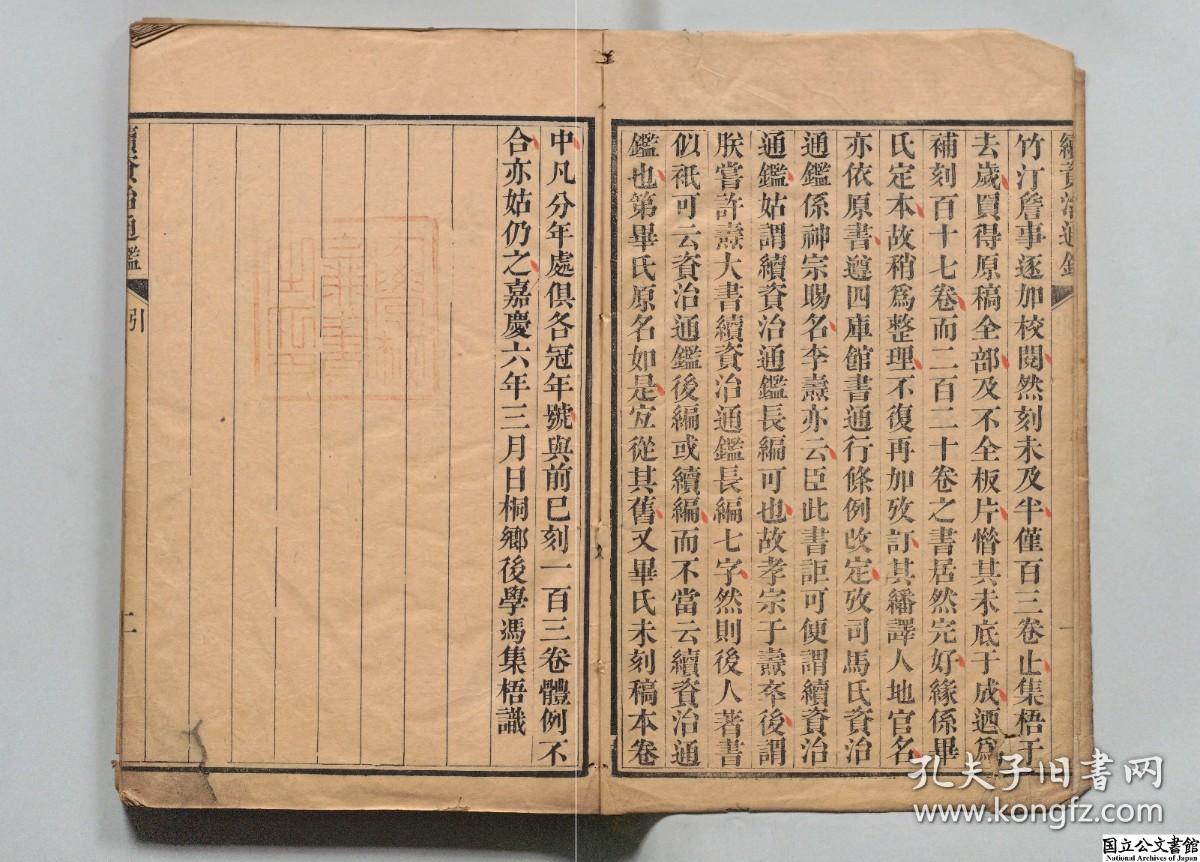 續資治通鑑
竹汀詹事逐加校閱然刻未及半僅百三卷止集梧于
去歲買得原稿全部及不全板片惜其未底于成廼爲
補刻百十七卷而二百二十卷之書居然完好緣係畢
氏定本故稍爲整理不復再加攷訂其繙譯人地官名
亦依原書遵四庫館書通行條例改定攷司馬氏資治
通鑑係神宗賜名李燾亦云臣此書詎可便謂續資治
通鑑姑謂續資治通鑑長編可也故孝宗于燾卒後謂
朕嘗許燾大書續資治通鑑長編七字然則後人著書
似祇可云資治通鑑後編或續編而不當云續資治通
鑑也第畢氏原名如是宐從其舊又畢氏未刻稿本卷
中凡分年處俱各冠年號與前已刻一百三卷體例不
合亦姑仍之嘉慶六年三月日桐鄉後學馮集梧識
續資治通鑑
引
二
孔夫子旧书网
www.kongfz.com
国立公文書館
National Archives of Japan